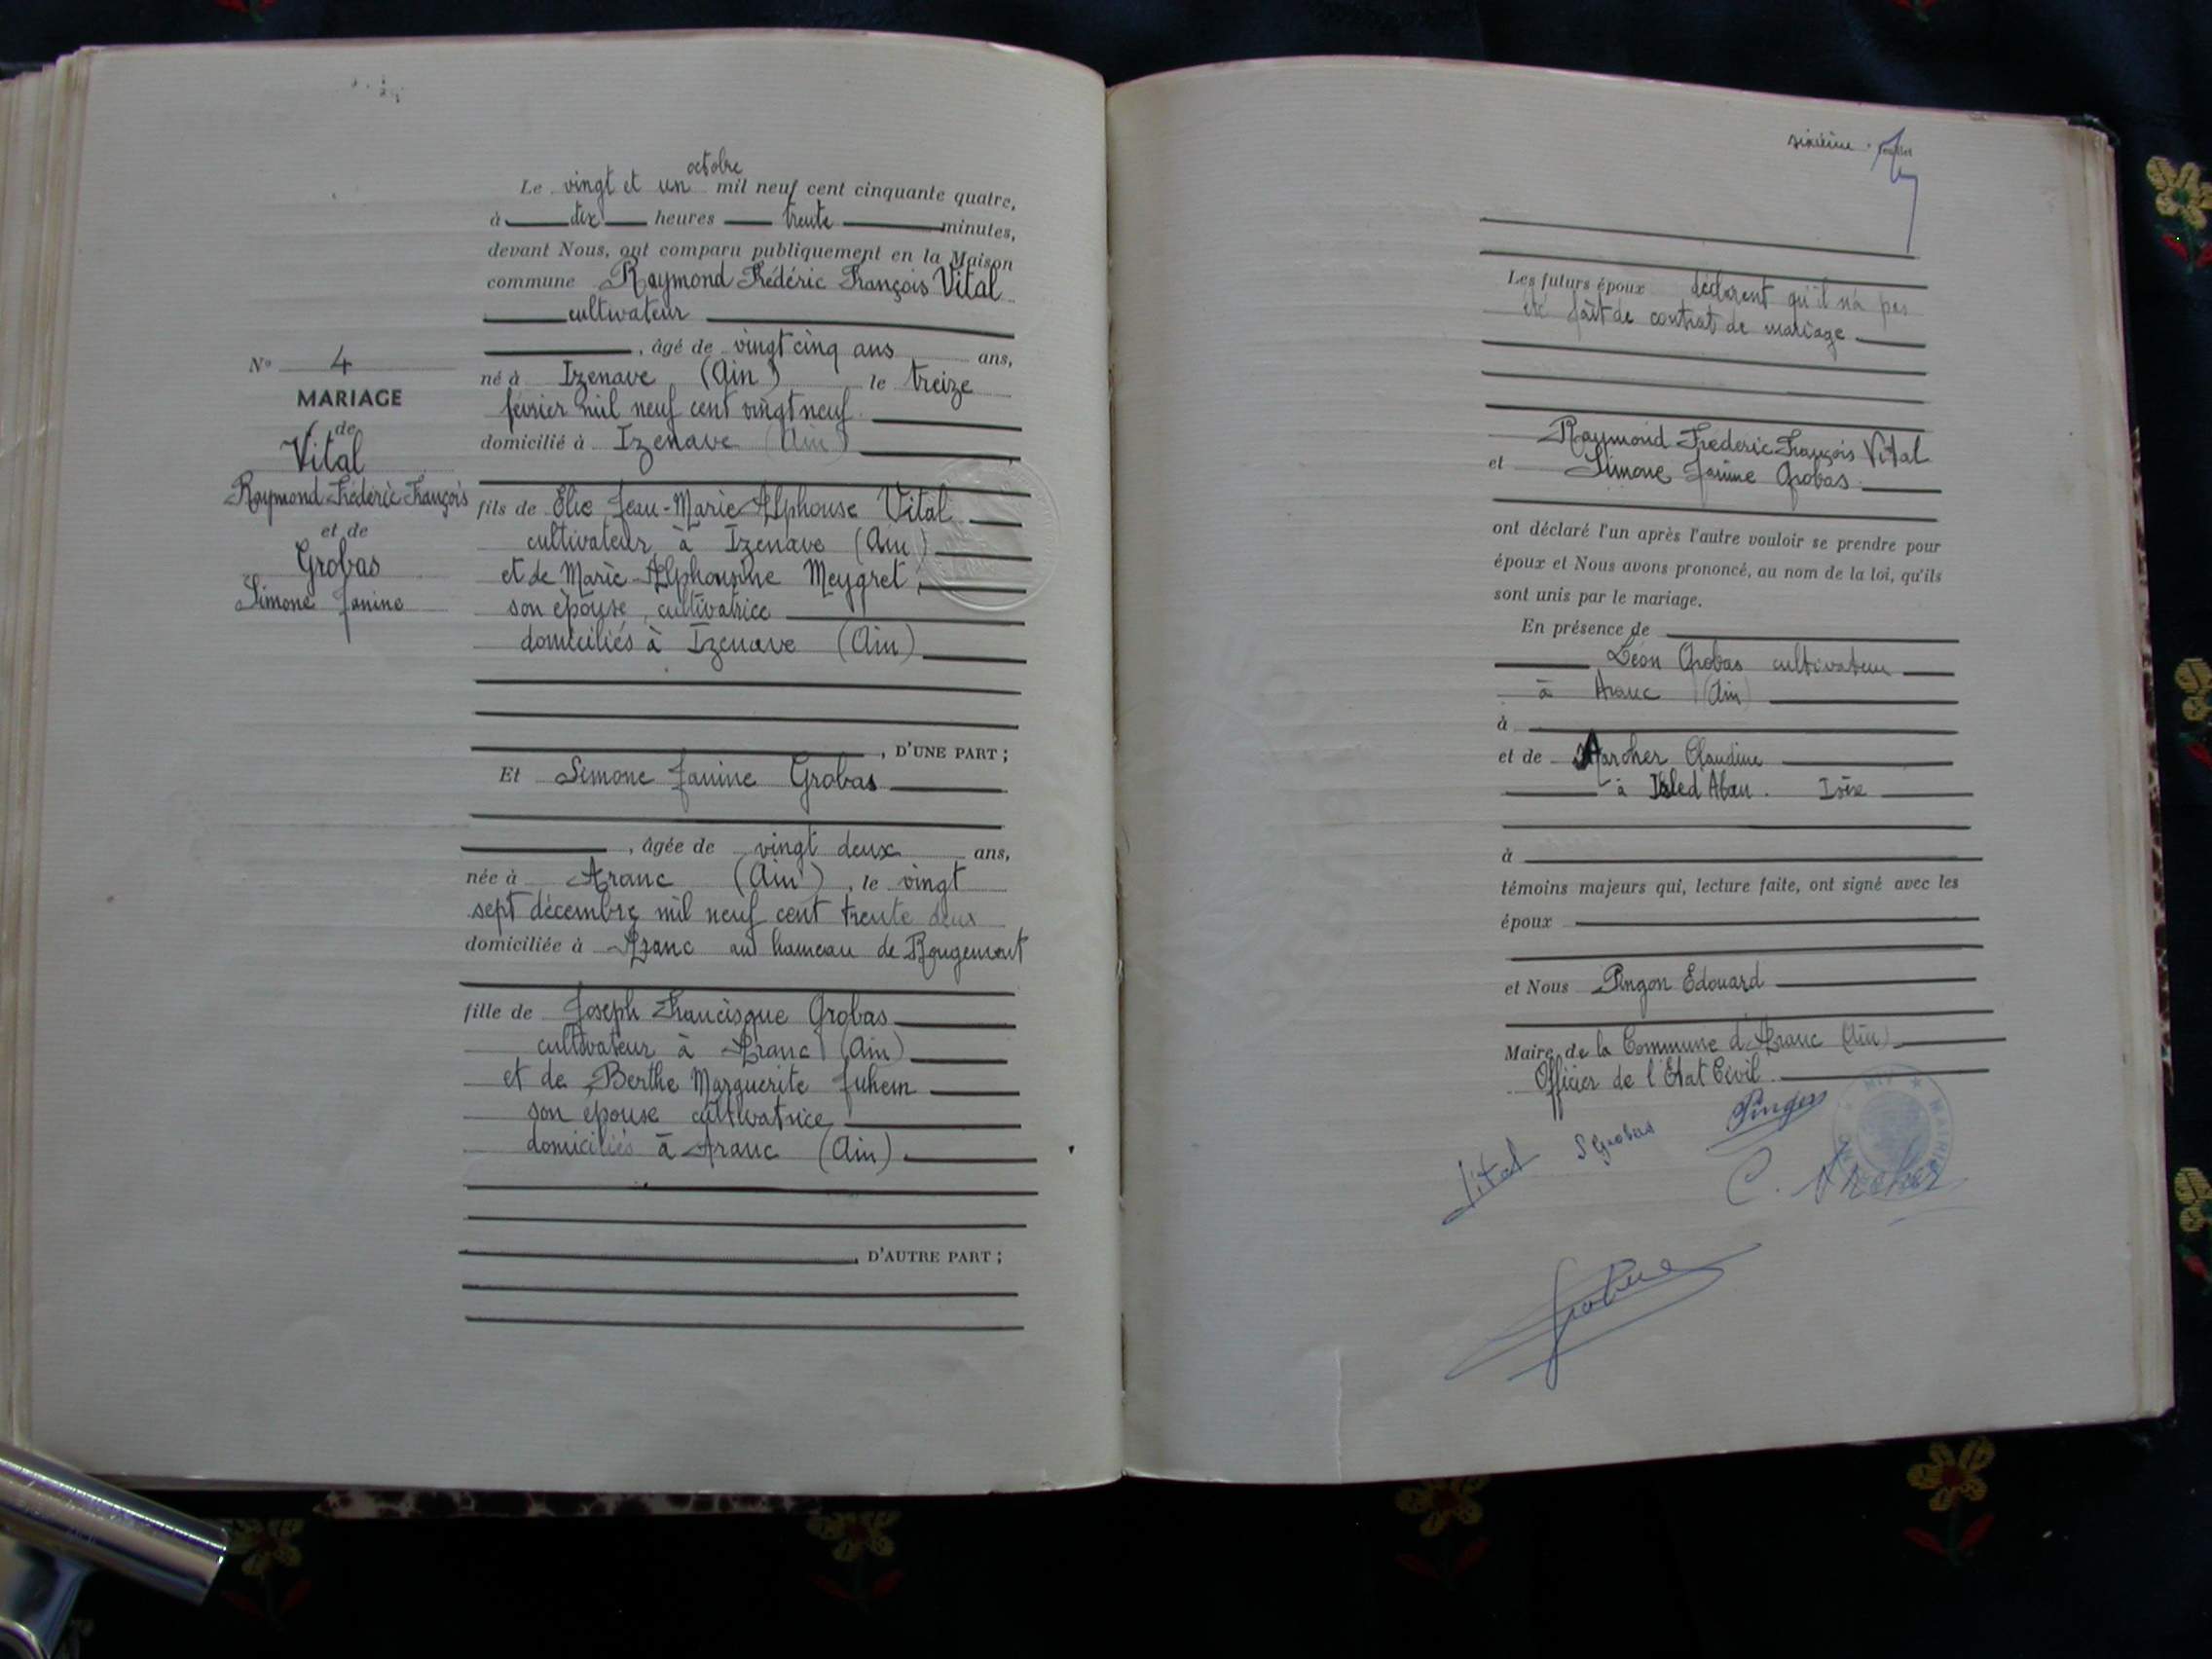 octobre
Le vingt et un mil neuf cent cinquante quatre,
à dix heures trente minutes,
devant Nous, ont comparu publiquement en la Maison
commune Raymond Frédéric François Vital
cultivateur
, âgé de vingt cinq ans ans,
né à Izenave (Ain) le treize
février mil neuf cent vingt neuf
domicilié à Izenave (Ain)
N° 4
MARIAGE
de
Vital
Raymond Frédéric François
et de
Grobas
Simone Janine
fils de Elie Jean-Marie Alphonse Vital
cultivateur à Izenave (Ain)
et de Marie Alphonsine Meygret,
son épouse, cultivatrice
domiciliés à Izenave (Ain)
, D'UNE PART ;
Et Simone Janine Grobas
, âgée de vingt deux ans,
née à Aranc (Ain), le vingt
sept décembre mil neuf cent trente deux
domiciliée à Aranc au hameau de Rougemont
fille de Joseph Francisque Grobas
cultivateur à Aranc (Ain)
et de Berthe Marguerite Juhem
son épouse cultivatrice
domiciliés à Aranc (Ain)
, D'AUTRE PART ;
sixième feuillet
Les futurs époux déclarent qu'il n'a pas
été fait de contrat de mariage
Raymond Frederic François Vital
et Simone Janine Grobas
ont déclaré l'un après l'autre vouloir se prendre pour
époux et Nous avons prononcé, au nom de la loi, qu'ils
sont unis par le mariage.
En présence de
Léon Grobas cultivateur
à Aranc (Ain)
à
et de Claudine
à Abau. Isère
à
témoins majeurs qui, lecture faite, ont signé avec les
époux
et Nous Pingon Edouard
Maire de la Commune d'Aranc (Ain)
Officier de l'Etat Civil
Vital SGrobas Pingon
MAIRIE
C.